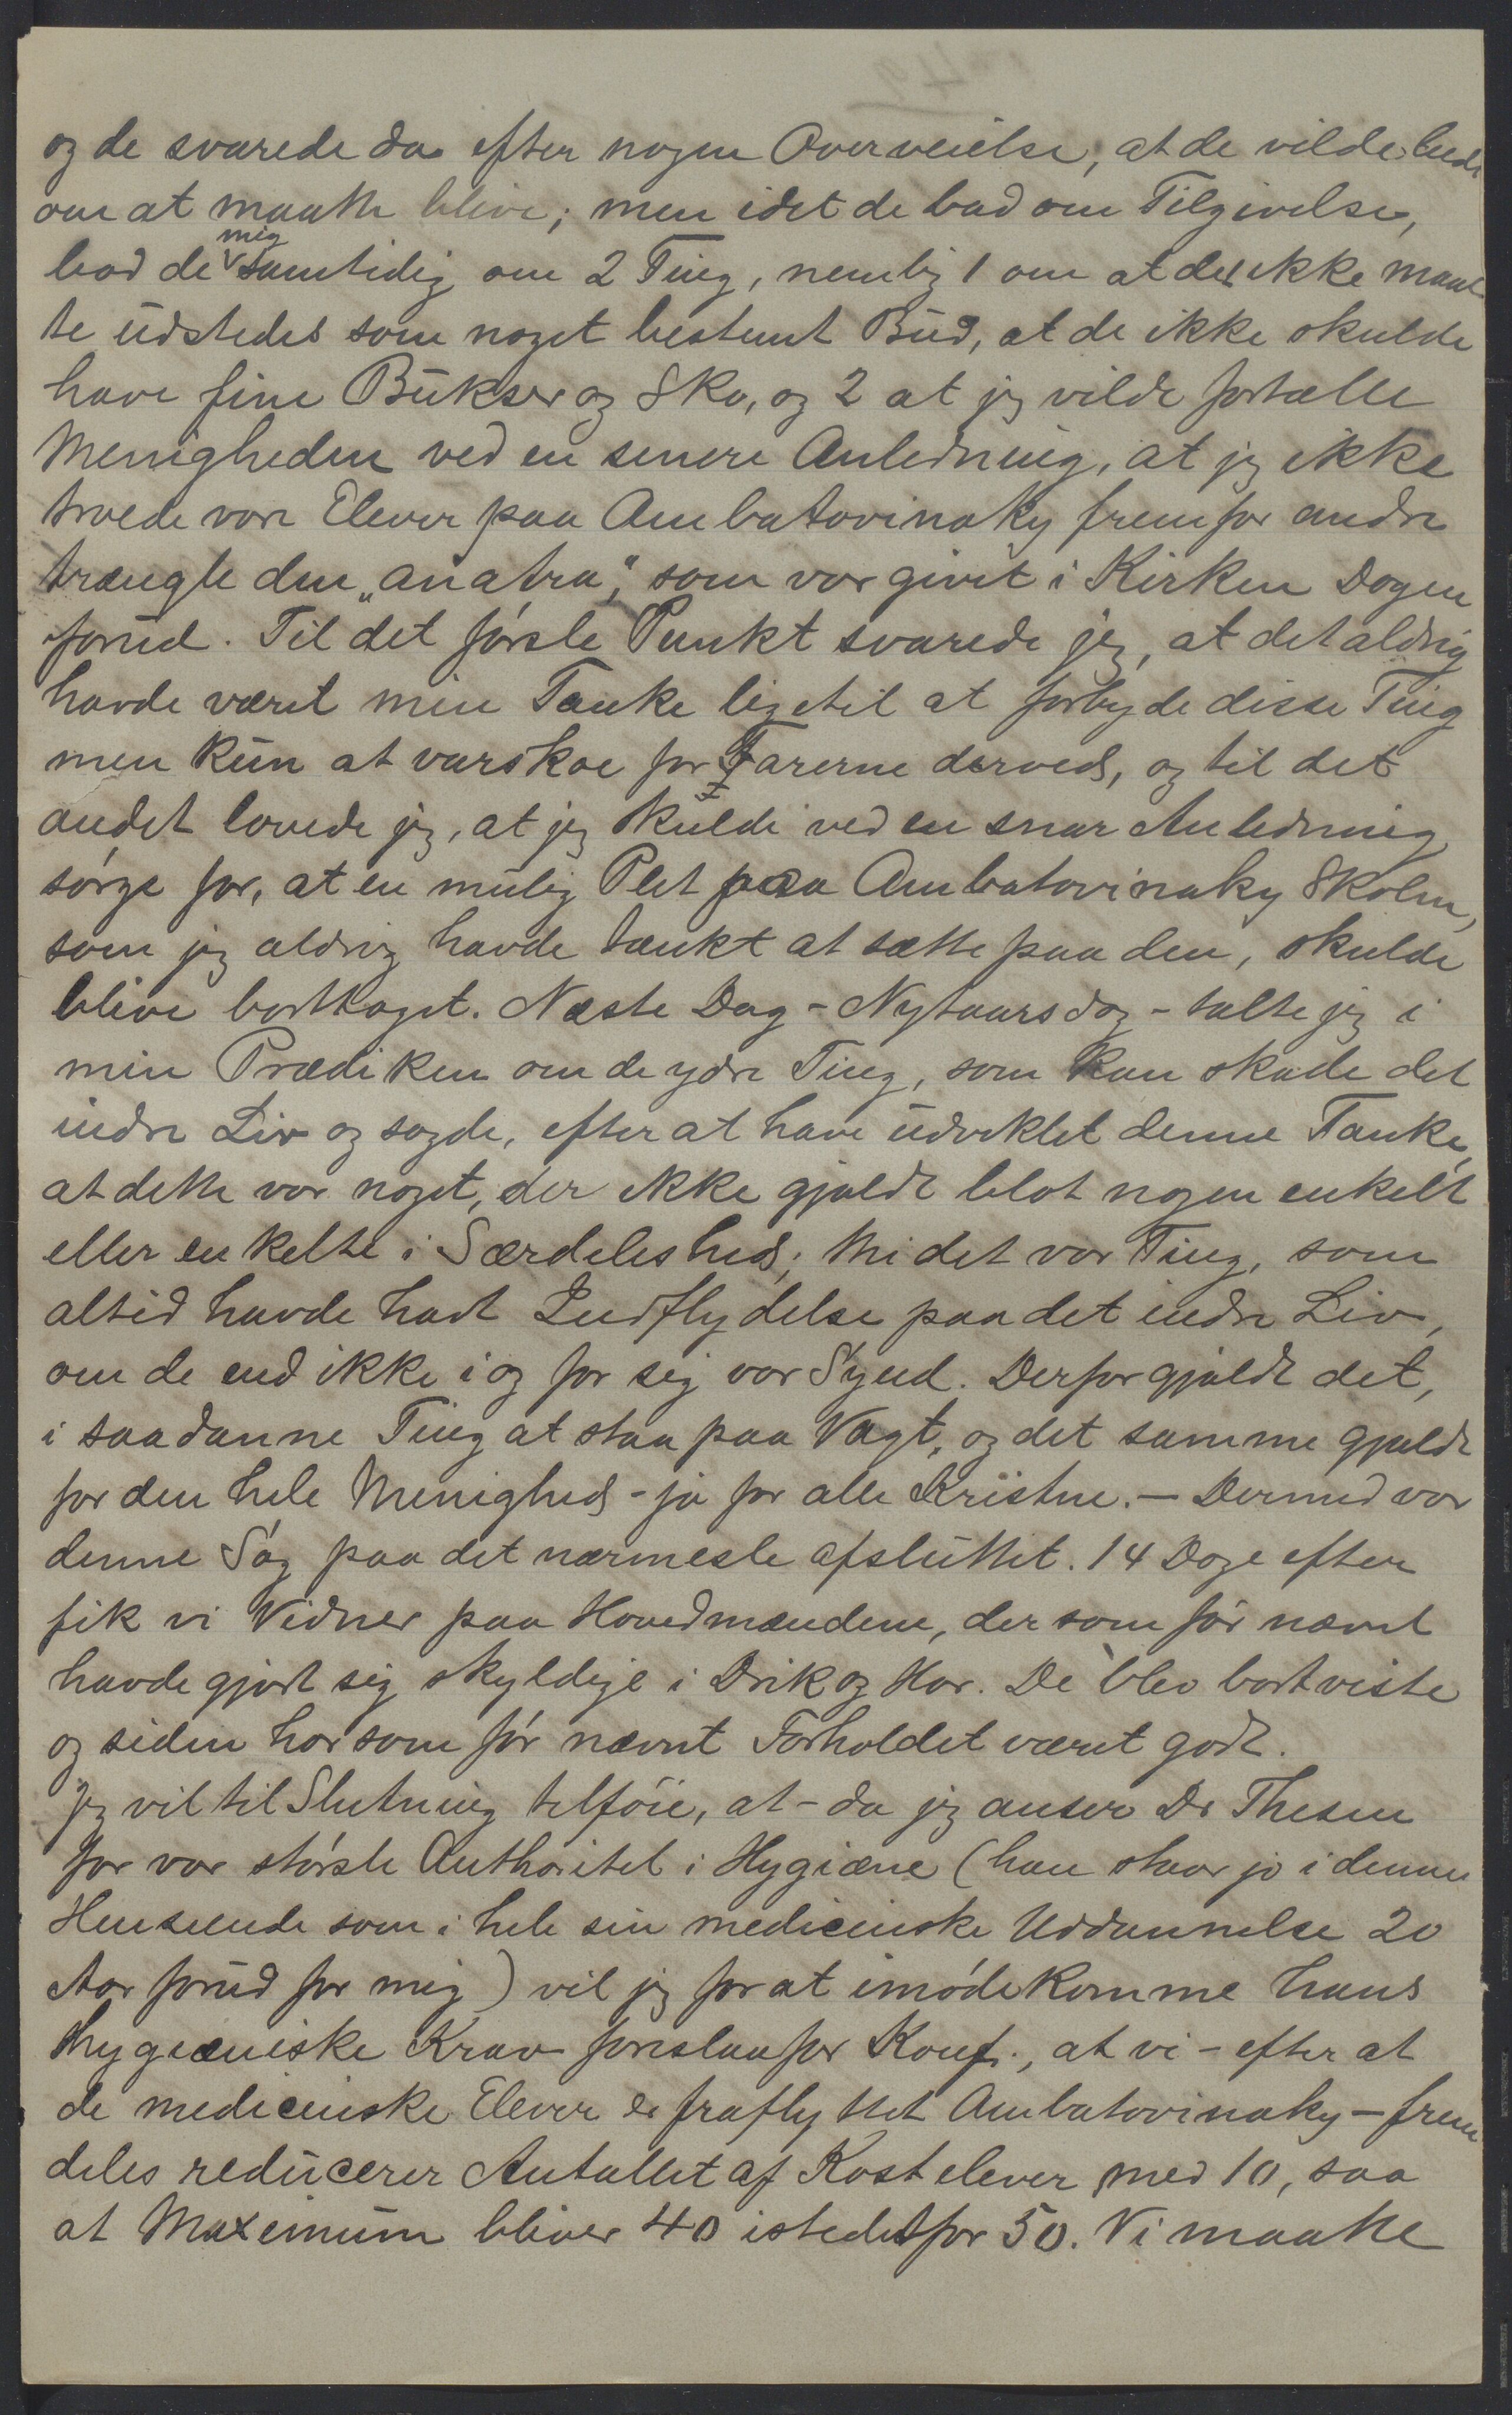 og de svarede da efter nogen Overveielse, at de vilde bede
om at maatte blive; men idet de bad om Tilgivelse,
bad de mig samtidig om 2 Ting, nemlig 1 om at det ikke maat-
te udstedes som noget bestemt Bud, at de ikke skulde
have fine Bukser og Sko, og 2 at jeg vilde fortælle
Menigheden ved en senere Anledning, at jeg ikke
troede vore Elever paa Ambatovinaky fremfor andre
trængte den "anatra", som var givet i Kirken Dagen
forud. Til det første Punkt svarede jeg, at det aldrig
havde været min Tanke ligetil at forbyde disse Ting
men kun at varskoe for Farerne derved, og til det
andet lovede jeg, at jeg skulde ved en snar Anledning
sørge for, at en mulig Plet paa Ambatovinaky Skolen,
som jeg aldrig havde tænkt at sætte paa den, skulde
blive borttaget. Næste Dag - Nytaarsdag - talte jeg i
min Prædiken om de ydre Ting, som kan skade det
indre Liv og sagde, efter at have udviklet denne Tanke,
at dette var noget, der ikke gjaldt blot nogen enkelt
eller enkelte i Særdeleshed; thi det var Ting, som
altid havde havt Indflydelse paa det indre Liv,
om de end ikke i og for sig var Synd. Derfor gjaldt det,
i saadanne Ting at staa paa Vagt, og det samme gjaldt
for den hele Menighed - ja for alle Kristne. - Dermed var
denne Sag paa det nærmeste afsluttet. 14 Dage efter
fik vi Vidner paa Hovedmændene, der som før nævnt
havde gjort sig skyldige i Drik og Hor. De blev bortviste
og siden har som før nævnt Forholdet været godt.
Jeg vil til Slutning tilføie, at - da jeg anser Dr Thesen
for vor største Authoritet i Hygiæne (han staar jo i denne
Henseende som i hele sin medicinske Uddannelse 20
Aar forud for mig) vil jeg for at imødekomme hans
hygiæniske Krav foreslaa for Konf., at vi - efter at
de medicinske Elever er fraflyttet Ambatovinaky - frem
deles reducerer Antallet af Kostelever med 10, saa
at Maximum bliver 40 istedetfor 50. Vi maatte